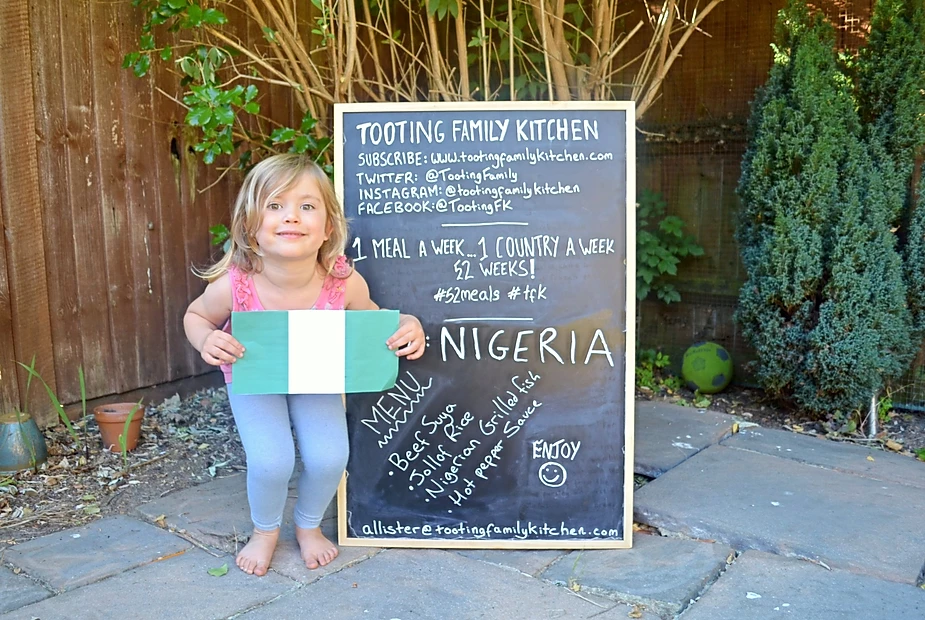 TOOTING FAMILY KITCHEN
SUBSCRIBE: www.tootingfamilykitchen.com
TWITTER: @TootingFamily
INSTAGRAM: @tootingfamilykitchen
FACEBOOK: @TootingFK
1 MEAL A WEEK... 1 COUNTRY A WEEK
52 WEEKS!
#52meals #tfk
: NIGERIA
MENU
• Beef Suya
• Jollof Rice
• Nigerian Grilled fish
• Hot pepper Sauce
ENJOY
allister@tootingfamilykitchen.com